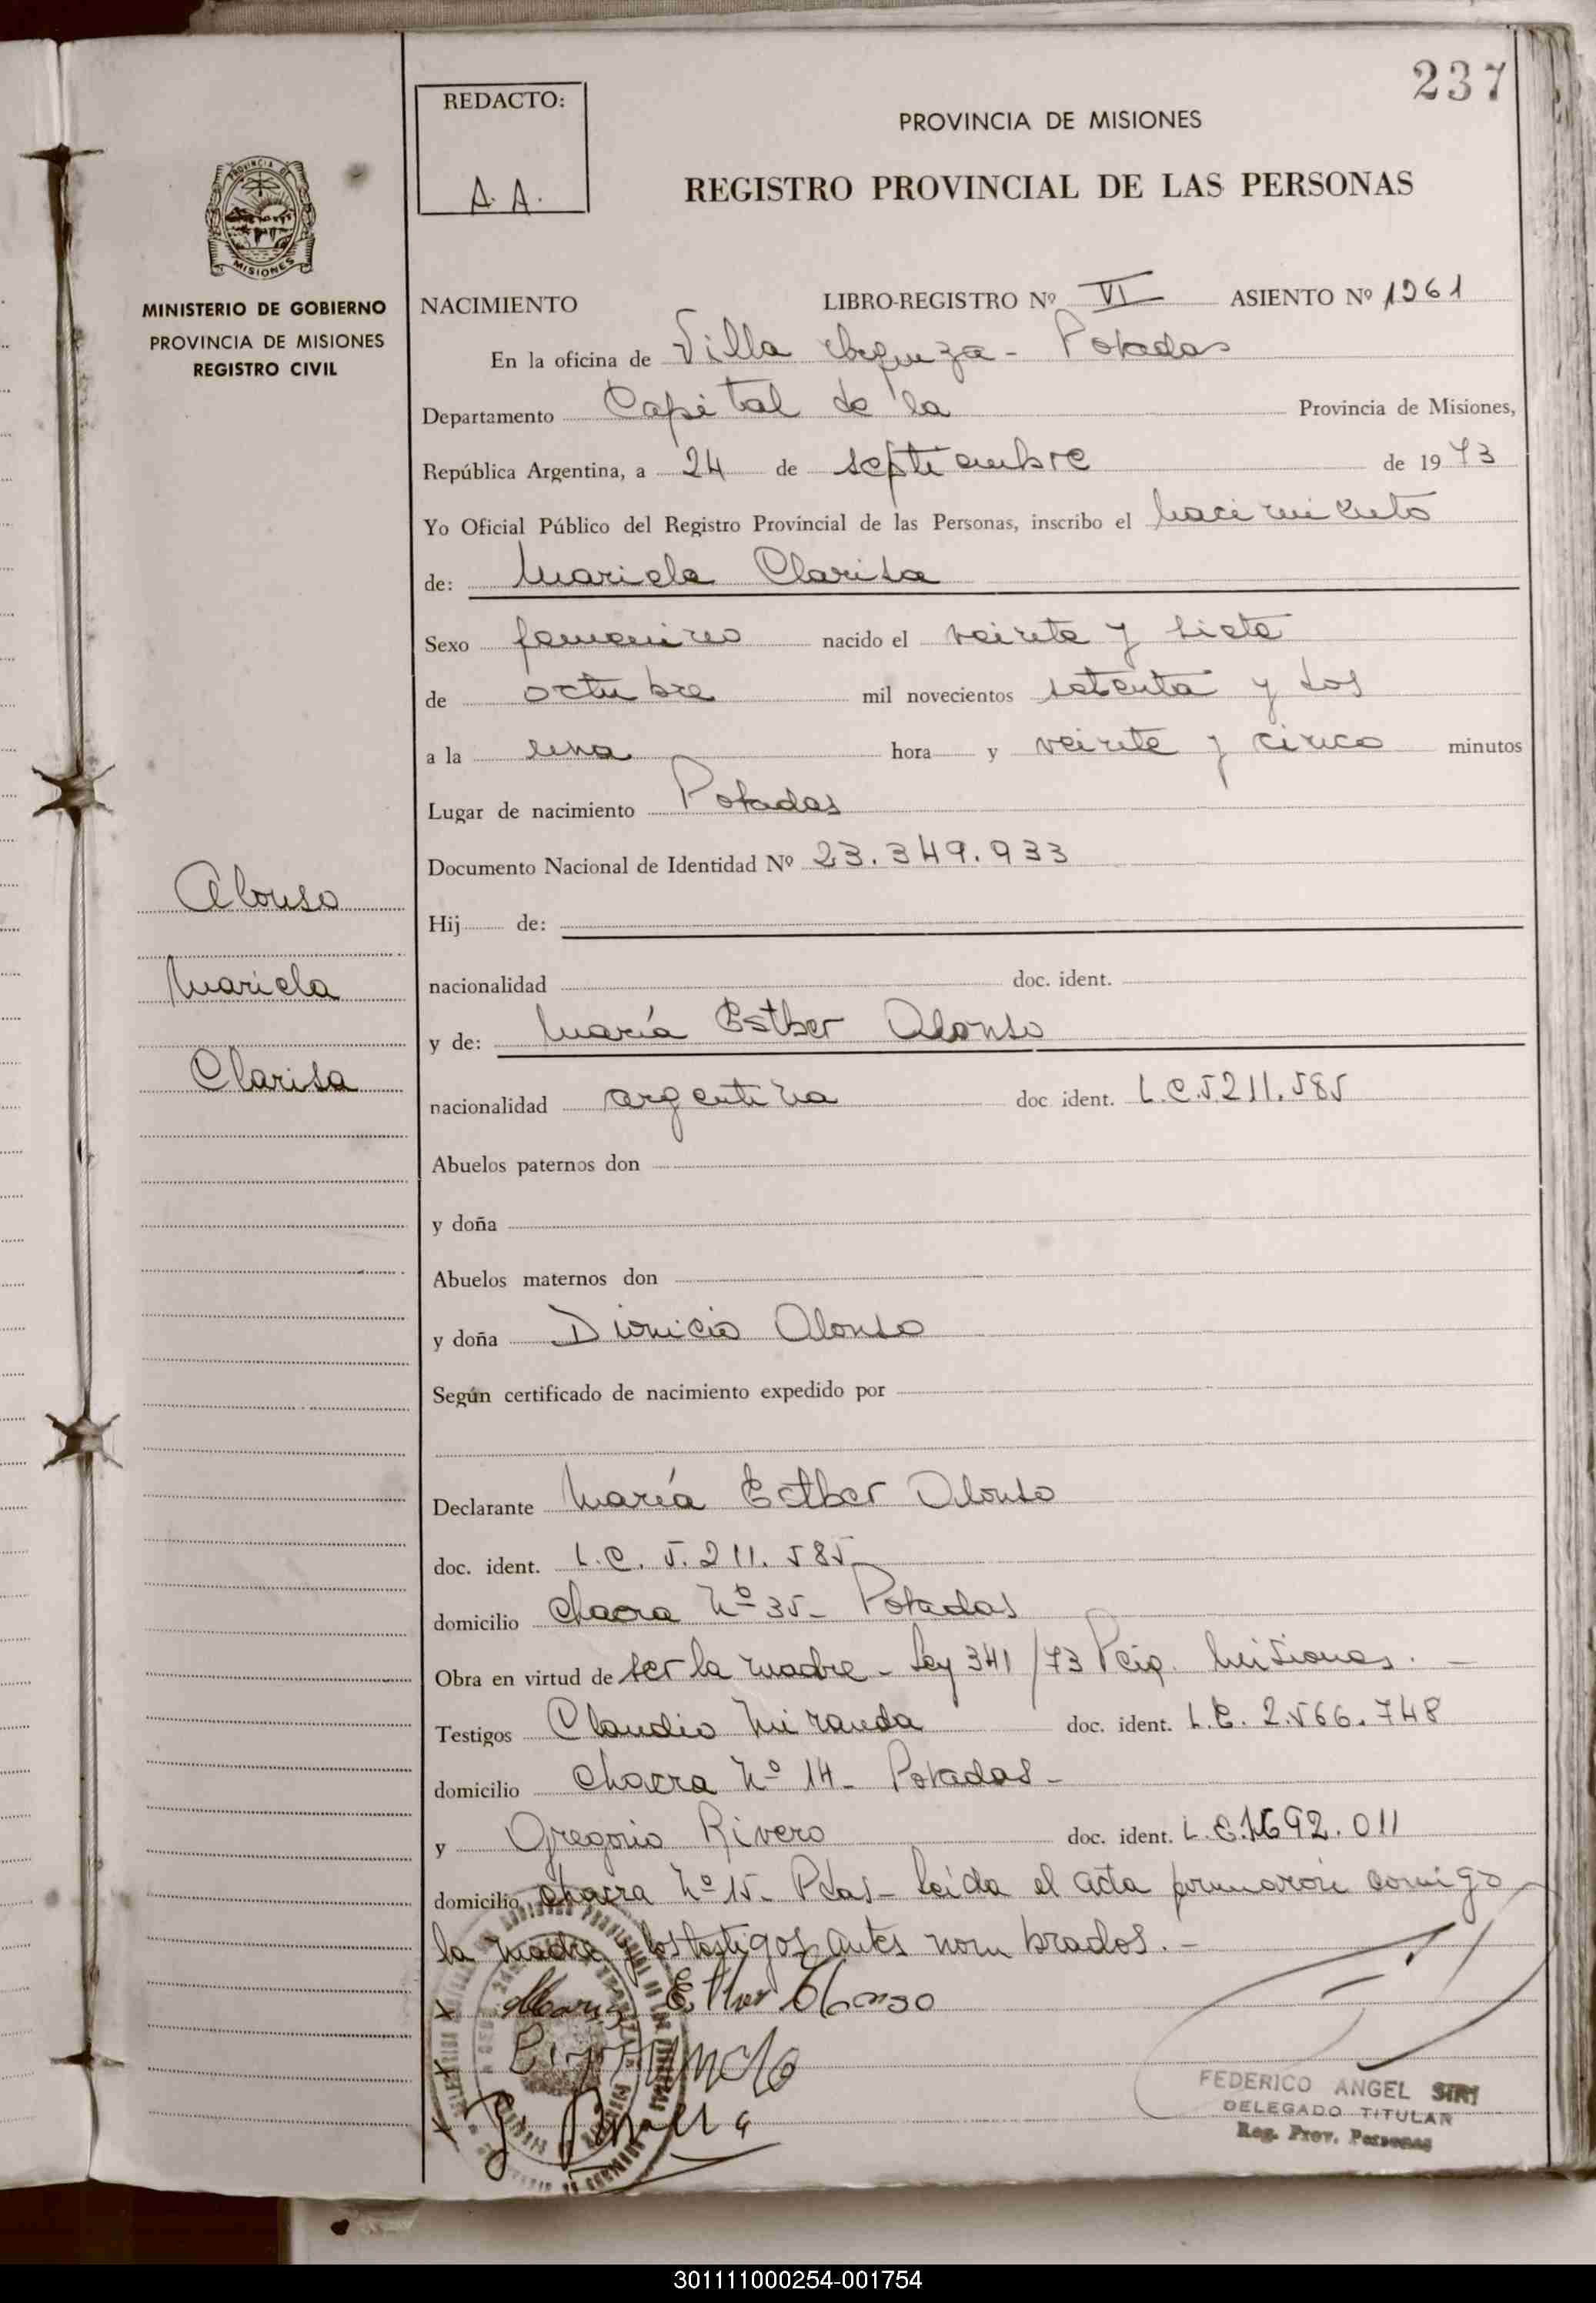 237
REDACTO:
A. A.
PROVINCIA DE MISIONES
REGISTRO PROVINCIAL DE LAS PERSONAS
PROVINCIA DE
MISIONES
MINISTERIO DE GOBIERNO
PROVINCIA DE MISIONES
REGISTRO CIVIL
NACIMIENTO LIBRO-REGISTRO Nº VI ASIENTO Nº 1961
En la oficina de Villa - Posadas
Departamento Capital de la Provincia de Misiones,
República Argentina, a 24 de septiembre de 1973
Yo Oficial Público del Registro Provincial de las Personas, inscribo el nacimiento
de: Mariela Clarisa
Sexo femenino nacido el veinte y siete
de octubre mil novecientos setenta y dos
a la una hora y veinte y cinco minutos
Lugar de nacimiento Posadas
Documento Nacional de Identidad Nº 23.349.933
Alonso
Mariela
Clarisa
Hij de:
nacionalidad doc. ident.
y de: María Esther Alonso
nacionalidad argentina doc ident. L.C. 5.211.585
Abuelos paternos don
y doña
Abuelos maternos don
y doña Dionicia Alonso
Según certificado de nacimiento expedido por
Declarante María Esther Alonso
doc. ident. L.C. 5.211.585
domicilio Chacra Nº 35- Posadas
Obra en virtud de ser la madre - Ley 341/73 Pcia. Misiones. -
Testigos Claudio Miranda doc. ident. L.E. 2.566.748
domicilio Chacra Nº 14- Posadas-
y Gregorio Rivero doc. ident. L.E. 1692.011
domicilio chacra Nº 15- Pdas- leida el acta firmaron comigo
la madre y los testigos antes nombrados. -
x Maria Esther Alonso
x
x
FEDERICO ANGEL SIRI
DELEGADO TITULAR
Reg. Prov. Personas
301111000254-001754